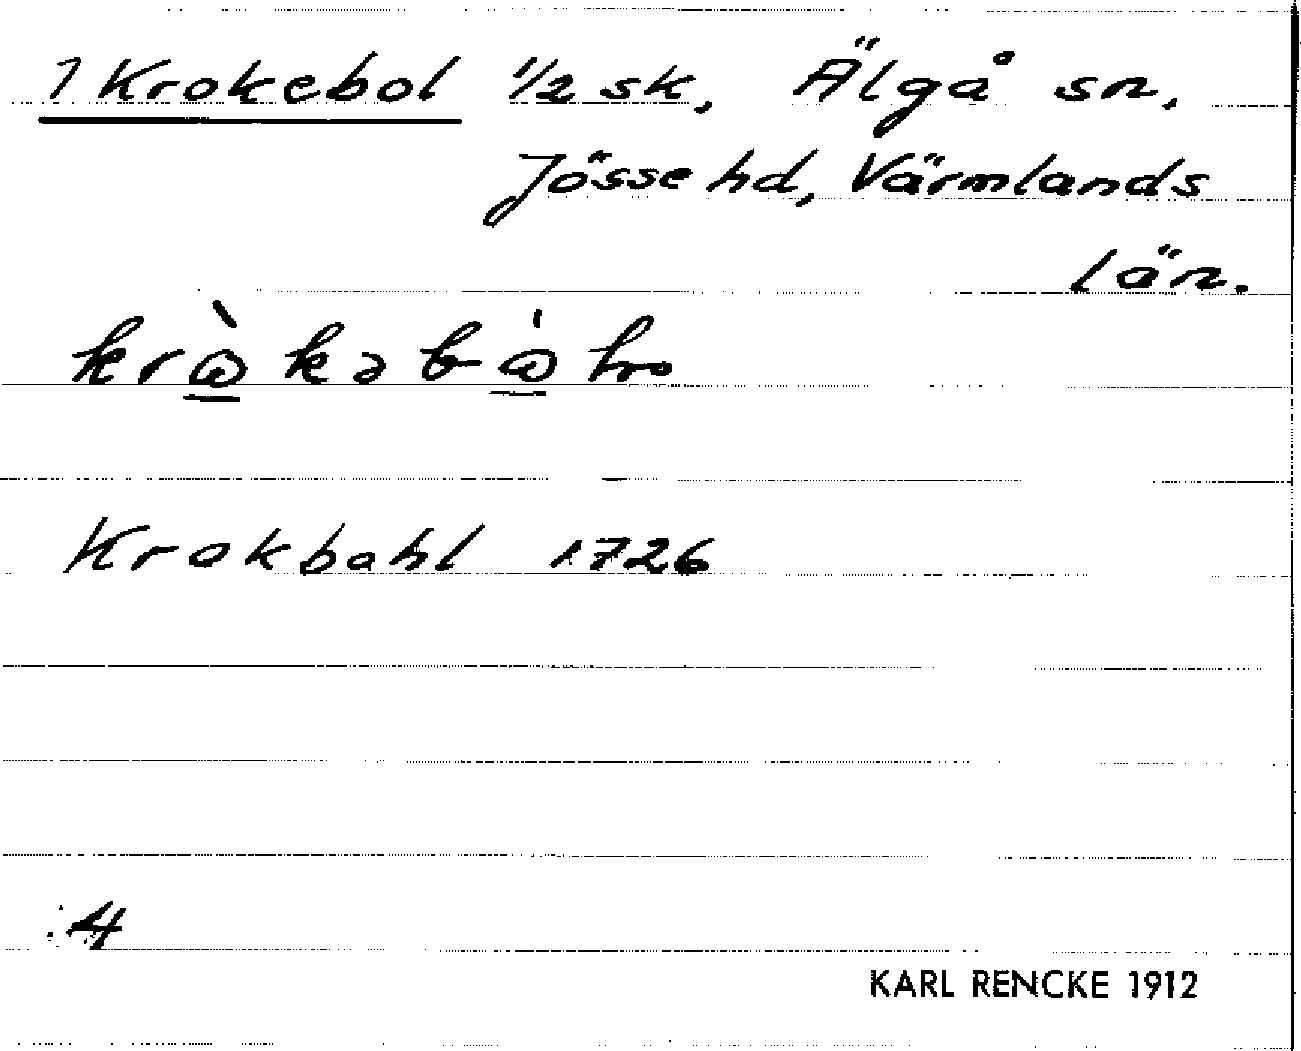 1 Krokebol 1/2 sk, Älgå sn.
Jösse hd, Värmlands
län.
Krokbahl 1726
4
KARL RENCKE 1912